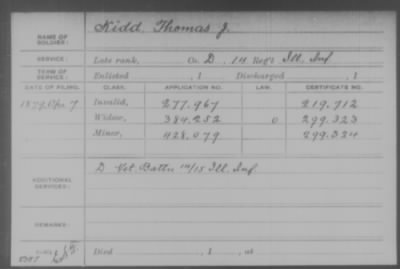 NAME OF SOLDIER: Kidd, Thomas J.
SERVICE: Late rank, Co. D, 14 Reg't Ill. Inf.
TERM OF SERVICE: Enlisted , 1 Discharged , 1
DATE OF FILING. CLASS. APPLICATION NO. LAW. CERTIFICATE NO.
1879, Apr. 7 Invalid, 277.967 219.912
Widow, 384.252 0 299.323
Minor, 428.079 299.324
ADDITIONAL SERVICES: D Vet. Battn 14/15 Ill. Inf.
REMARKS:
Died , 1 , at